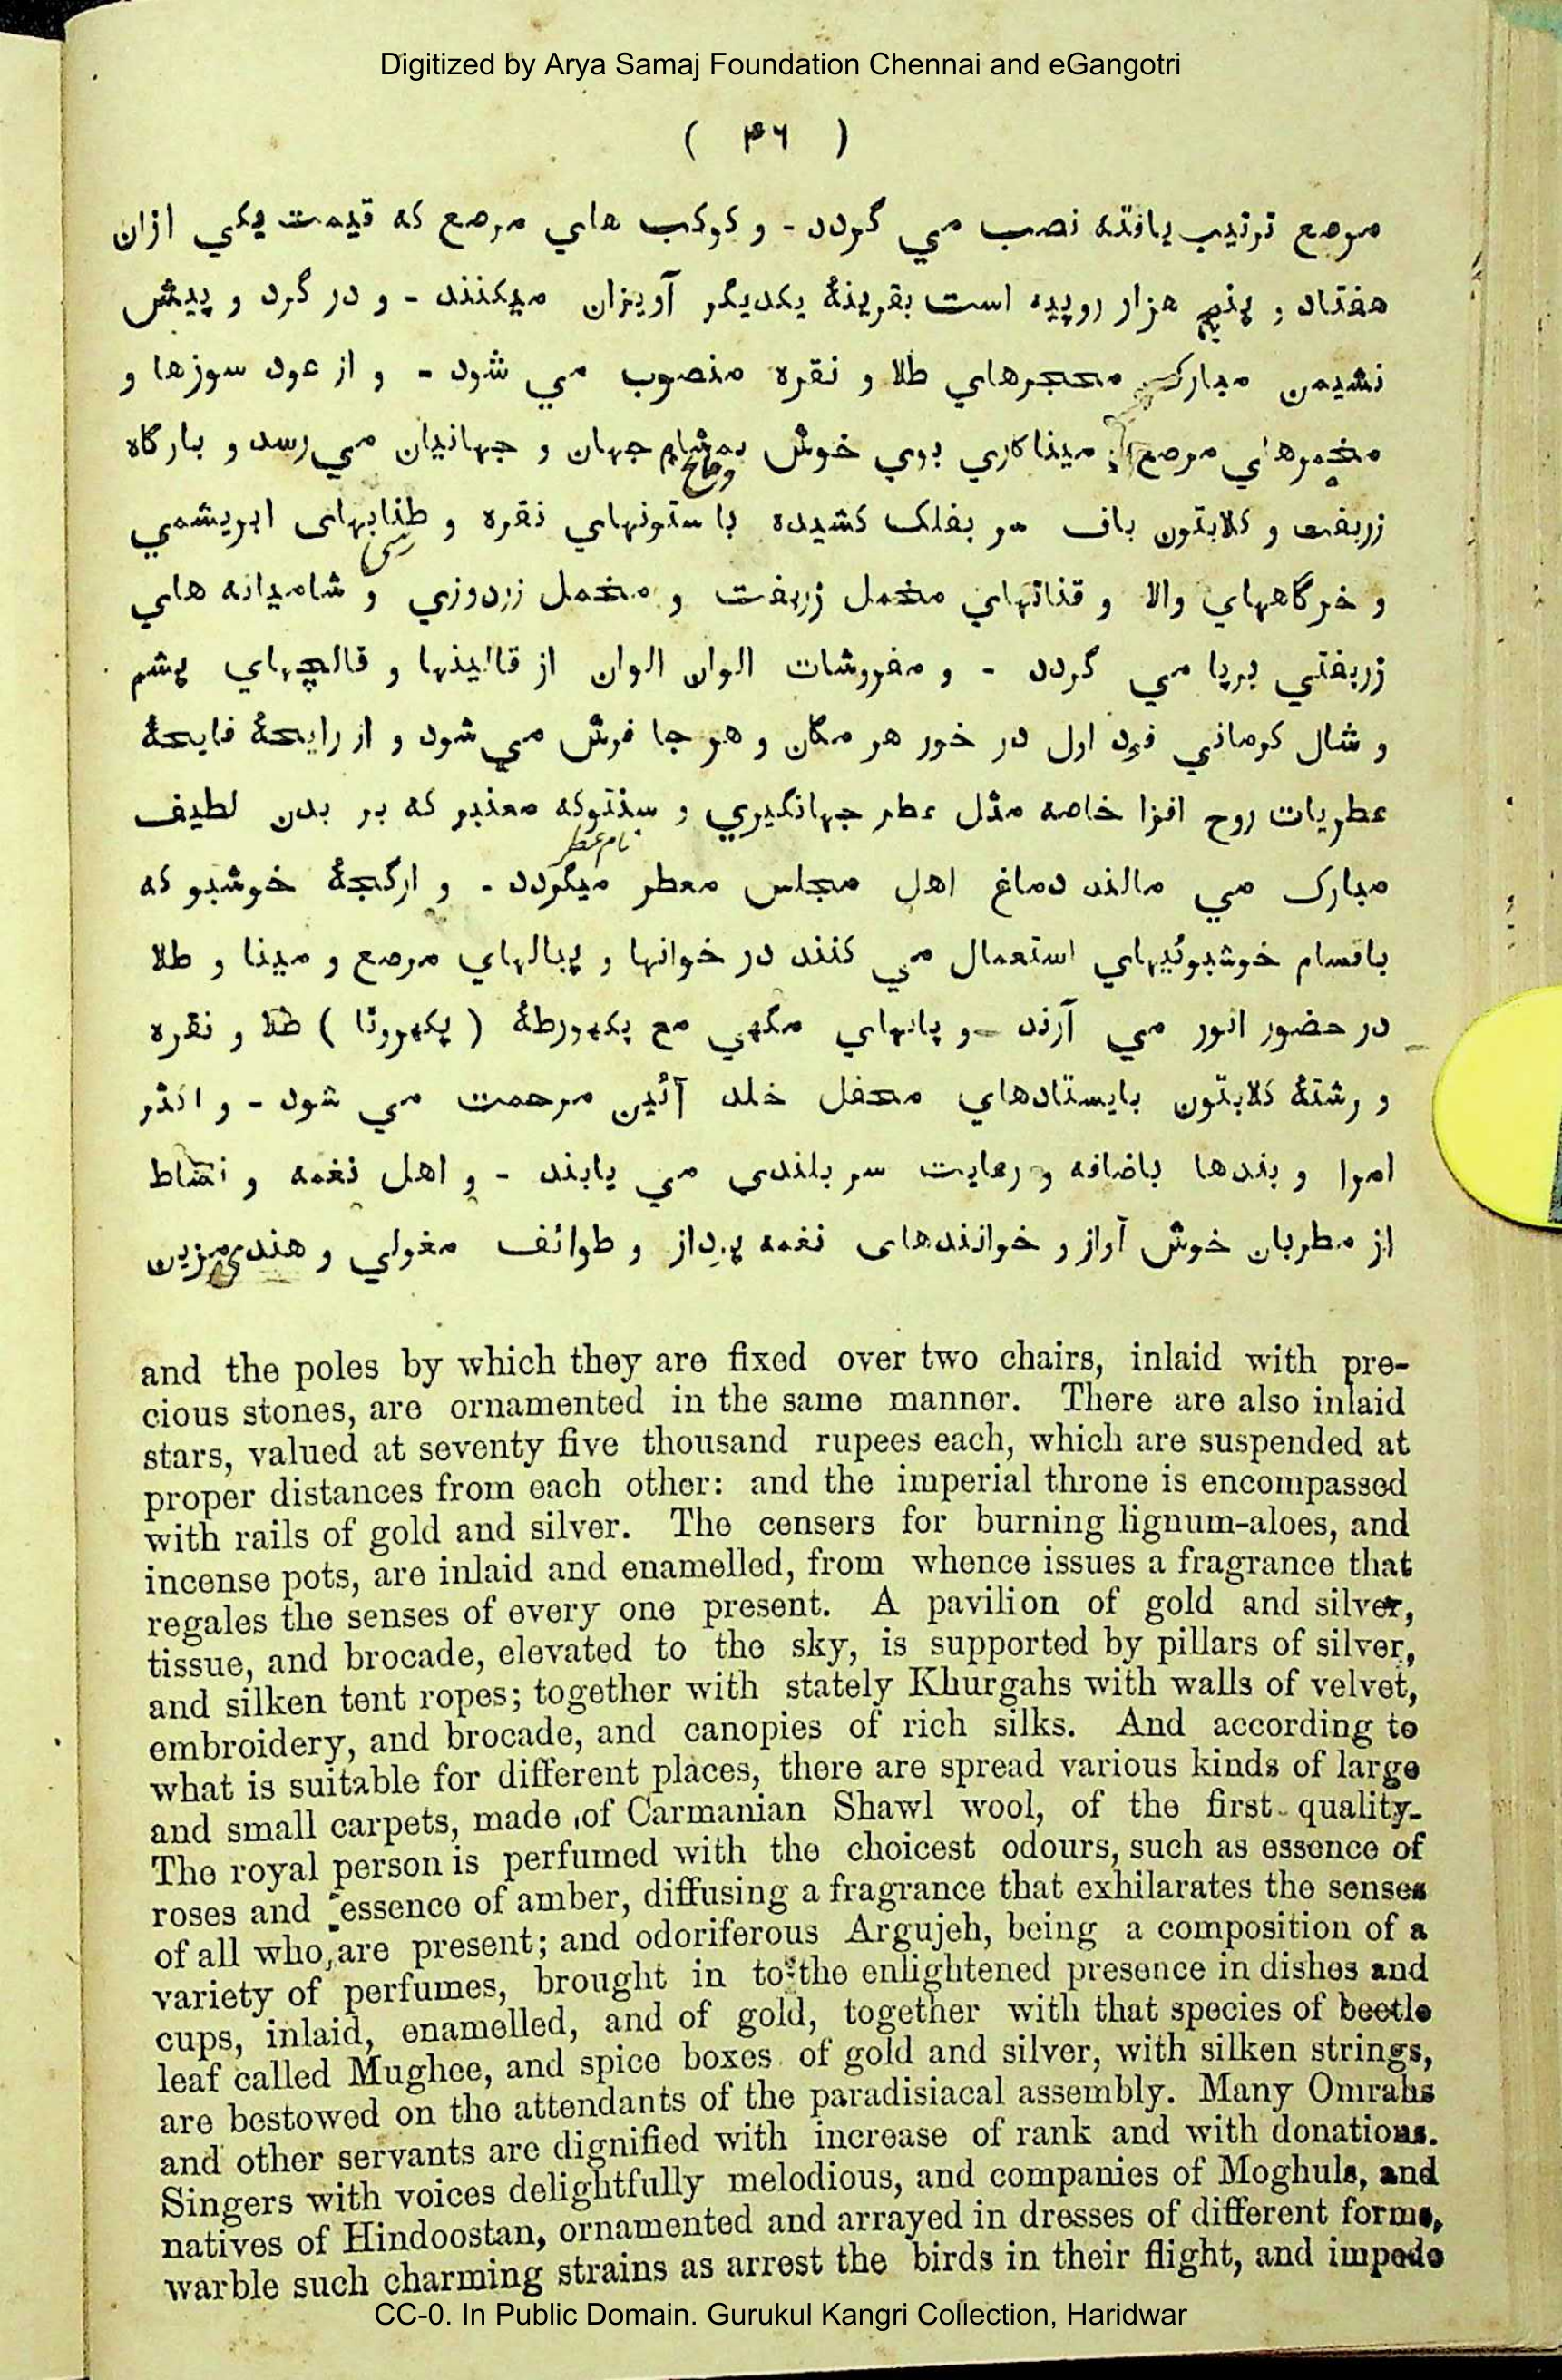 Digitized by Arya Samaj Foundation Chennai and eGangotri
( ۴۶ )
مرصع ترتیب یافته نصب مي گردد - و کوکب هاي مرصع که قیمت یکي ازان
هفتاد و پنج هزار روپیه است بقرینهٔ یکدیگر آویزان میکنند - و در گرد و پیش
نشیمن مبارک محجرهاي طلا و نقره منصوب مي شود - و از عود سوزها و
مرصع میناکاري بوي خوش بمشام جهان و جهانیان مي رسد و بارگاه
زربفت و کلابتون باف سر بفلک کشیده با ستونهاي نقره و طنابهای ابریشمي
و خرگاههاي والا و قناتهاي مخمل زربفت و مخمل زردوزي و شامیانه هاي
زربفتي برپا مي گردد - و مفروشات الوان الوان از قالینها و قالچهاي پشم
و شال کرماني فرد اول در خور هر مکان و هر جا فرش مي شود و از رایحهٔ فایحهٔ
عطریات روح افزا خاصه مثل عطر جهانگیري و سنتوکه معنبر که بر بدن لطیف
نام عطر
مبارک مي مالند دماغ اهل مجلس معطر میگردد - و ارگجهٔ خوشبو که
باقسام خوشبوئیهاي استعمال مي کنند در خوانها و پیالهاي مرصع و مینا و طلا
در حضور انور مي آرند - و پانهاي مگهي مع پکهورطهٔ ( پکهروٹا ) طلا و نقره
و رشتهٔ کلابتون بایستادهاي محفل خلد آئین مرحمت مي شود - و اکثر
امرا و بندها باضافه و رعایت سر بلندي مي یابند - و اهل نغمه و نشاط
از مطربان خوش آواز و خوانندهای نغمه پرداز و طوائف مغولي و هندی مزین
and the poles by which they are fixed over two chairs, inlaid with pre-
cious stones, are ornamented in the same manner. There are also inlaid
stars, valued at seventy five thousand rupees each, which are suspended at
proper distances from each other: and the imperial throne is encompassed
with rails of gold and silver. The censers for burning lignum-aloes, and
incense pots, are inlaid and enamelled, from whence issues a fragrance that
regales the senses of every one present. A pavilion of gold and silver,
tissue, and brocade, elevated to the sky, is supported by pillars of silver,
and silken tent ropes; together with stately Khurgahs with walls of velvet,
embroidery, and brocade, and canopies of rich silks. And according to
what is suitable for different places, there are spread various kinds of large
and small carpets, made of Carmanian Shawl wool, of the first quality.
The royal person is perfumed with the choicest odours, such as essence of
roses and essence of amber, diffusing a fragrance that exhilarates the senses
of all who are present; and odoriferous Argujeh, being a composition of a
variety of perfumes, brought in to the enlightened presence in dishes and
cups, inlaid, enamelled, and of gold, together with that species of beetle
leaf called Mughee, and spice boxes of gold and silver, with silken strings,
are bestowed on the attendants of the paradisiacal assembly. Many Omrahs
and other servants are dignified with increase of rank and with donations.
Singers with voices delightfully melodious, and companies of Moghuls, and
natives of Hindoostan, ornamented and arrayed in dresses of different forms,
warble such charming strains as arrest the birds in their flight, and impede
CC-0. In Public Domain. Gurukul Kangri Collection, Haridwar